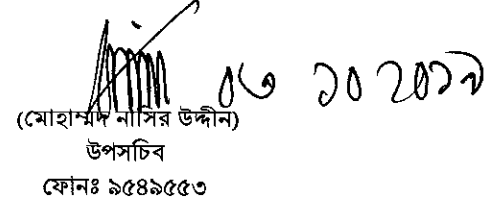 ০৩ ১০ ২০১৯
(মোহাম্মদ নাসির উদ্দীন)
উপসচিব
ফোনঃ ৯৫৪৯৫৫৩